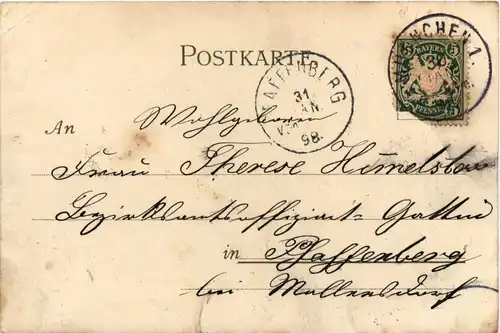 POSTKARTE
PFAFFENBERG
31 JAN
98.
MÜNCHEN 1.
30
5 BAYERN 5
PFENNIG
An Wohlgeboren
Frau Therese
Bezirksamtsoffiziant- Gattin
in Pfaffenberg
bei Mallersdorf